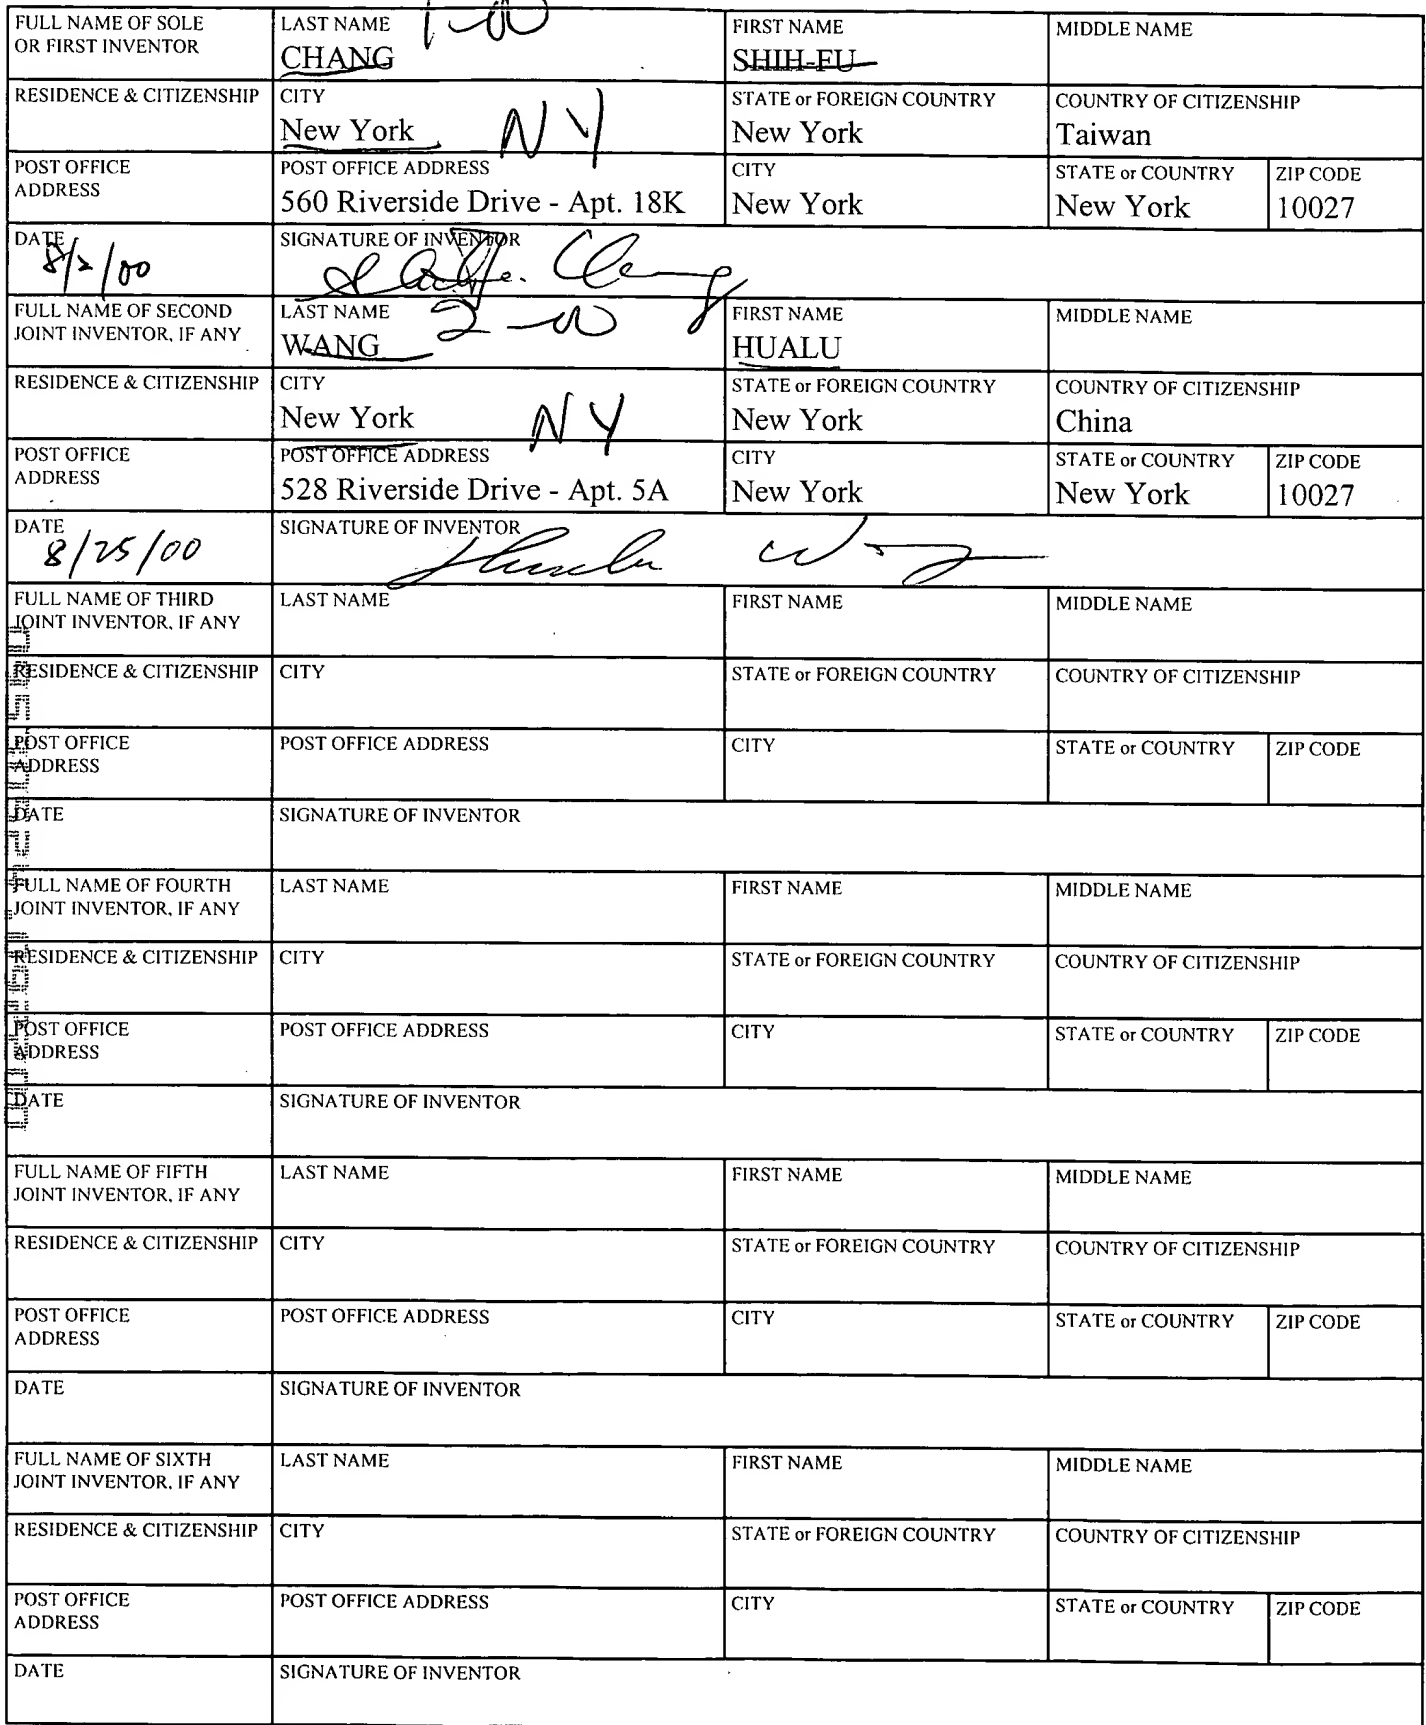 FULL NAME OF SOLE
OR FIRST INVENTOR
LAST NAME
1-00
CHANG
FIRST NAME
SHIH-FU
MIDDLE NAME
RESIDENCE & CITIZENSHIP
CITY
New York NY
STATE or FOREIGN COUNTRY
New York
COUNTRY OF CITIZENSHIP
Taiwan
POST OFFICE
ADDRESS
POST OFFICE ADDRESS
560 Riverside Drive - Apt. 18K
CITY
New York
STATE or COUNTRY
New York
ZIP CODE
10027
DATE
8/2/00
SIGNATURE OF INVENTOR
FULL NAME OF SECOND
JOINT INVENTOR, IF ANY
LAST NAME
2-00
WANG
FIRST NAME
HUALU
MIDDLE NAME
RESIDENCE & CITIZENSHIP
CITY
New York NY
STATE or FOREIGN COUNTRY
New York
COUNTRY OF CITIZENSHIP
China
POST OFFICE
ADDRESS
POST OFFICE ADDRESS
528 Riverside Drive - Apt. 5A
CITY
New York
STATE or COUNTRY
New York
ZIP CODE
10027
DATE
8/25/00
SIGNATURE OF INVENTOR
Hualu Wang
FULL NAME OF THIRD
JOINT INVENTOR, IF ANY
LAST NAME
FIRST NAME
MIDDLE NAME
RESIDENCE & CITIZENSHIP
CITY
STATE or FOREIGN COUNTRY
COUNTRY OF CITIZENSHIP
POST OFFICE
ADDRESS
POST OFFICE ADDRESS
CITY
STATE or COUNTRY
ZIP CODE
DATE
SIGNATURE OF INVENTOR
FULL NAME OF FOURTH
JOINT INVENTOR, IF ANY
LAST NAME
FIRST NAME
MIDDLE NAME
RESIDENCE & CITIZENSHIP
CITY
STATE or FOREIGN COUNTRY
COUNTRY OF CITIZENSHIP
POST OFFICE
ADDRESS
POST OFFICE ADDRESS
CITY
STATE or COUNTRY
ZIP CODE
DATE
SIGNATURE OF INVENTOR
FULL NAME OF FIFTH
JOINT INVENTOR, IF ANY
LAST NAME
FIRST NAME
MIDDLE NAME
RESIDENCE & CITIZENSHIP
CITY
STATE or FOREIGN COUNTRY
COUNTRY OF CITIZENSHIP
POST OFFICE
ADDRESS
POST OFFICE ADDRESS
CITY
STATE or COUNTRY
ZIP CODE
DATE
SIGNATURE OF INVENTOR
FULL NAME OF SIXTH
JOINT INVENTOR, IF ANY
LAST NAME
FIRST NAME
MIDDLE NAME
RESIDENCE & CITIZENSHIP
CITY
STATE or FOREIGN COUNTRY
COUNTRY OF CITIZENSHIP
POST OFFICE
ADDRESS
POST OFFICE ADDRESS
CITY
STATE or COUNTRY
ZIP CODE
DATE
SIGNATURE OF INVENTOR